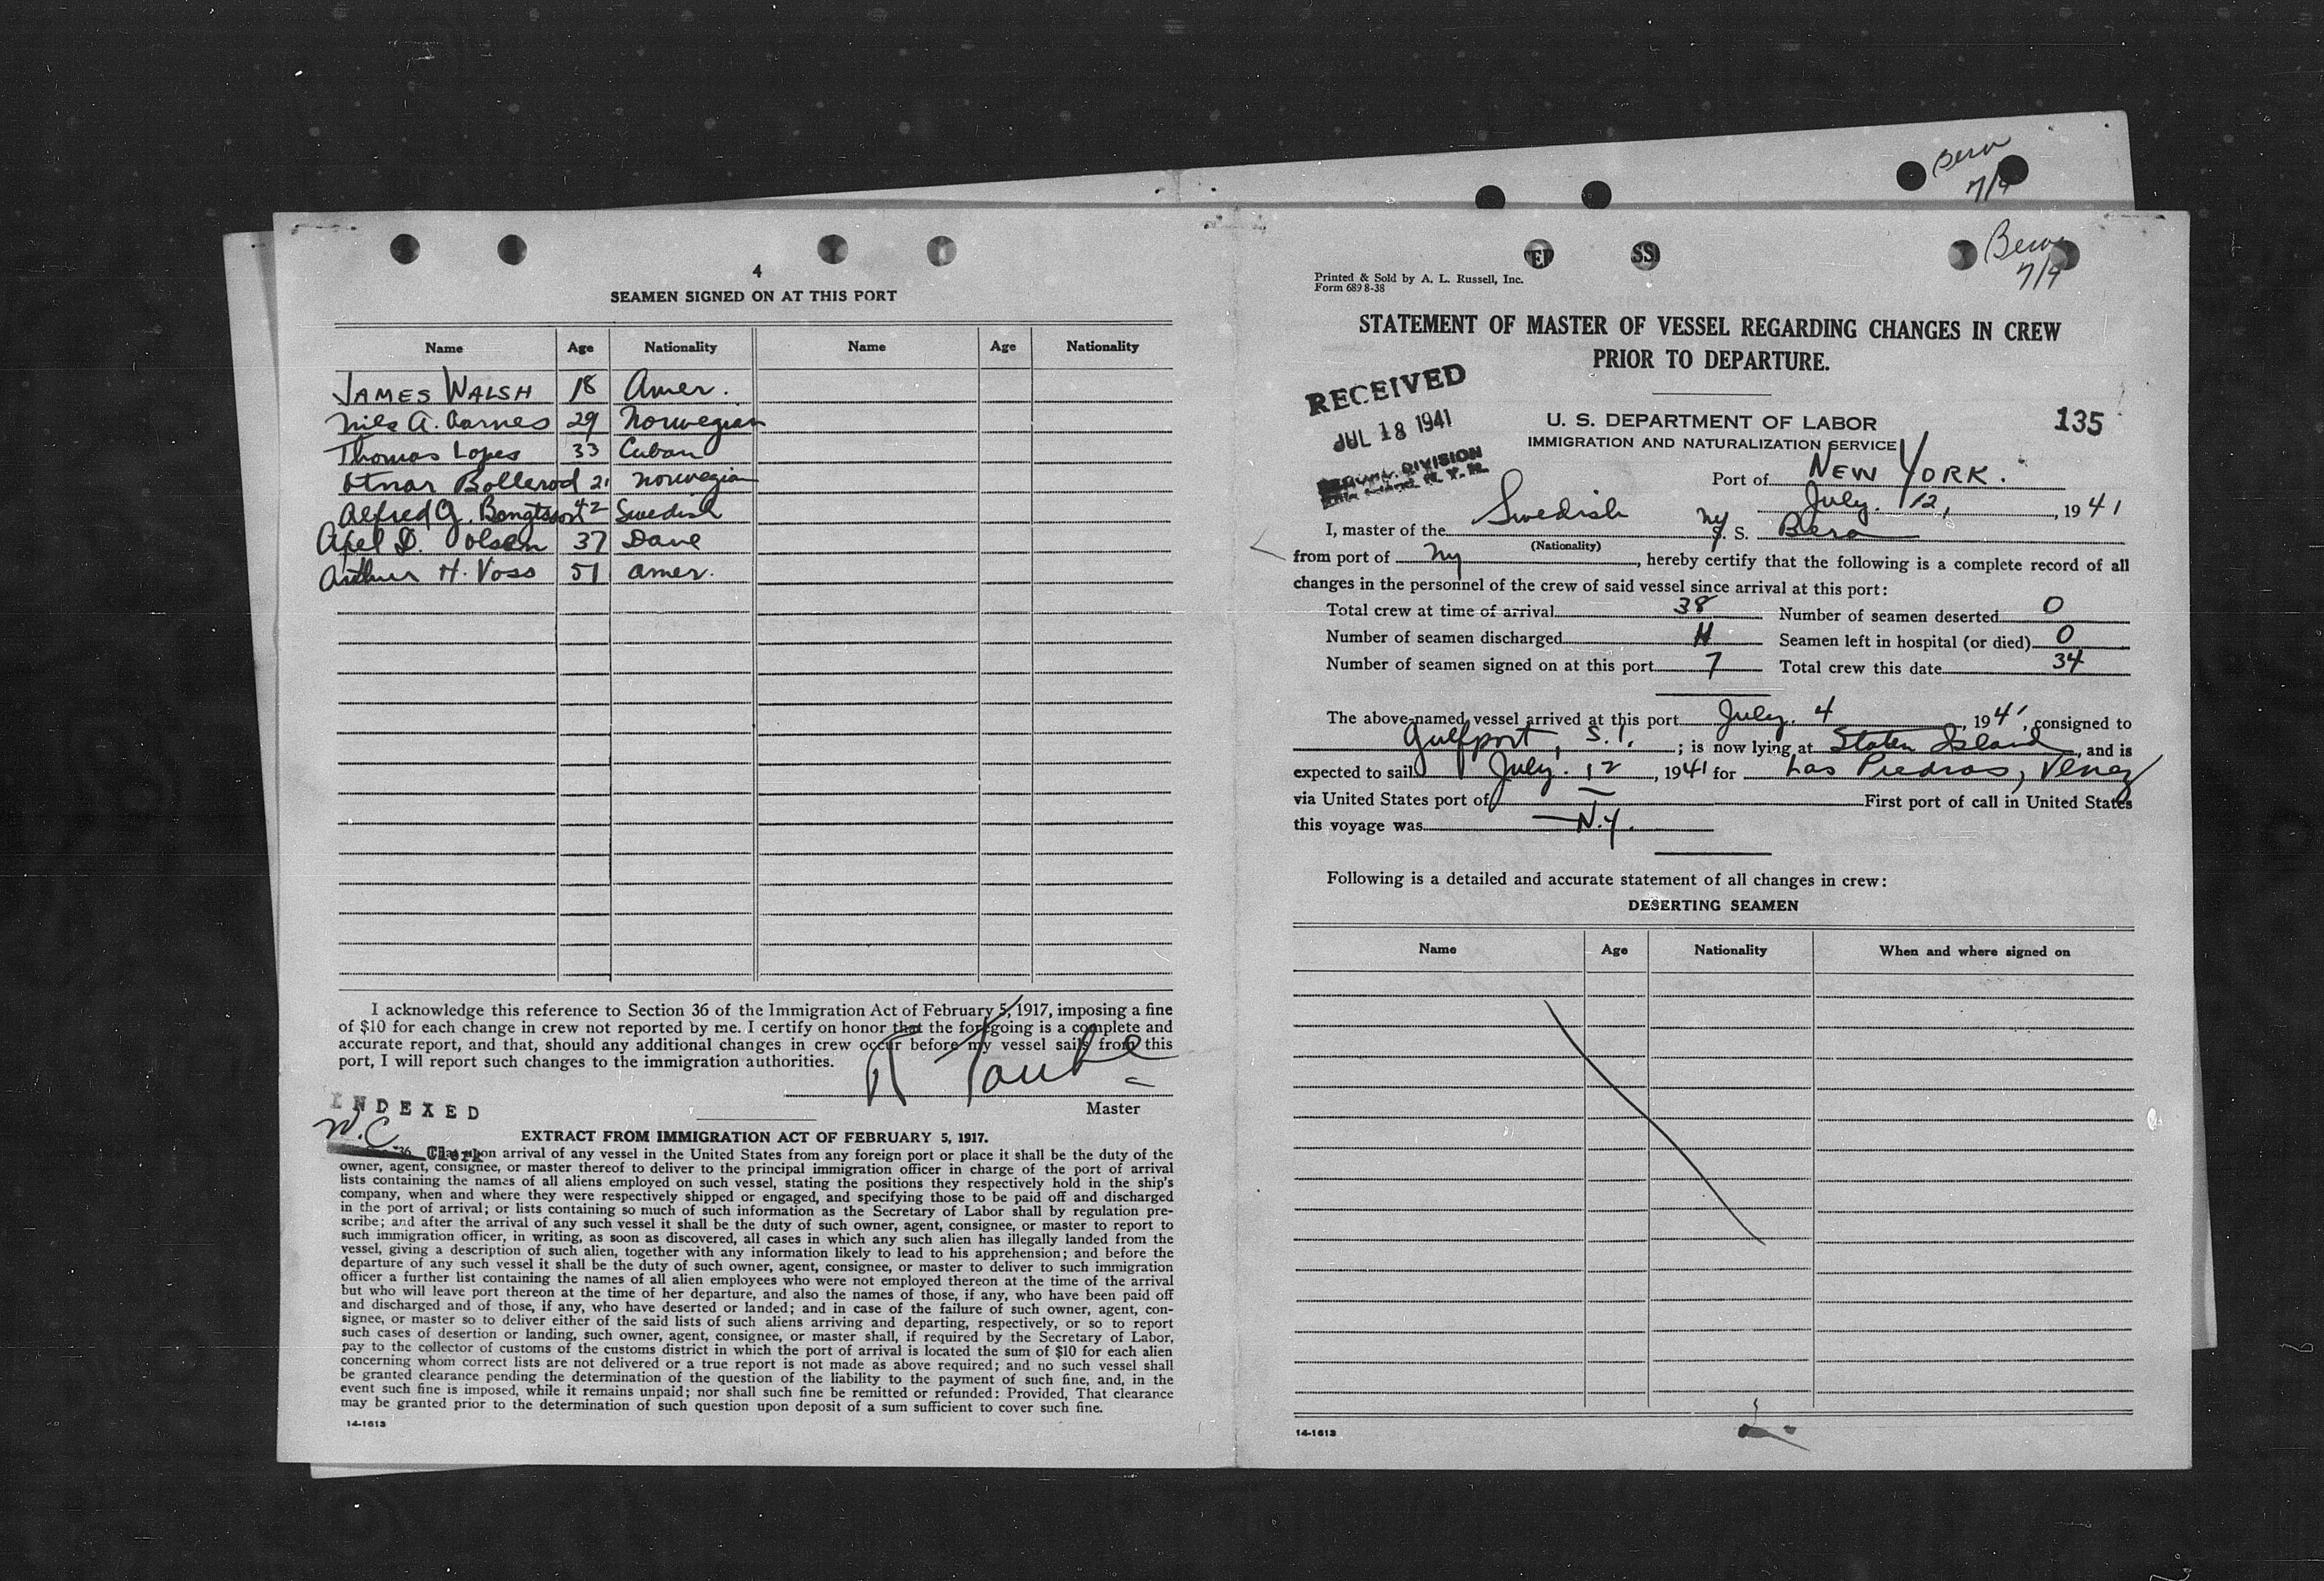 Bera
7/9
4
SEAMEN SIGNED ON AT THIS PORT
Name Age Nationality Name Age Nationality
JAMES WALSH 18 Amer.
Nils A. Aarnes 29 Norwegian
Thomas Lopes 33 Cuban
Otnar Bollerod 21 Norwegian
Alfred G. Bengtsson 42 Swedish
Axel D. Olsen 37 Dane
Arthur H. Voss 51 Amer.
I acknowledge this reference to Section 36 of the Immigration Act of February 5, 1917, imposing a fine
of $10 for each change in crew not reported by me. I certify on honor that the foregoing is a complete and
accurate report, and that, should any additional changes in crew occur before my vessel sails from this
port, I will report such changes to the immigration authorities.
Master
INDEXED
W.C
Clerk
EXTRACT FROM IMMIGRATION ACT OF FEBRUARY 5, 1917.
36. That upon arrival of any vessel in the United States from any foreign port or place it shall be the duty of the
owner, agent, consignee, or master thereof to deliver to the principal immigration officer in charge of the port of arrival
lists containing the names of all aliens employed on such vessel, stating the positions they respectively hold in the ship's
company, when and where they were respectively shipped or engaged, and specifying those to be paid off and discharged
in the port of arrival; or lists containing so much of such information as the Secretary of Labor shall by regulation pre-
scribe; and after the arrival of any such vessel it shall be the duty of such owner, agent, consignee, or master to report to
such immigration officer, in writing, as soon as discovered, all cases in which any such alien has illegally landed from the
vessel, giving a description of such alien, together with any information likely to lead to his apprehension; and before the
departure of any such vessel it shall be the duty of such owner, agent, consignee, or master to deliver to such immigration
officer a further list containing the names of all alien employees who were not employed thereon at the time of the arrival
but who will leave port thereon at the time of her departure, and also the names of those, if any, who have been paid off
and discharged and of those, if any, who have deserted or landed; and in case of the failure of such owner, agent, con-
signee, or master so to deliver either of the said lists of such aliens arriving and departing, respectively, or so to report
such cases of desertion or landing, such owner, agent, consignee, or master shall, if required by the Secretary of Labor,
pay to the collector of customs of the customs district in which the port of arrival is located the sum of $10 for each alien
concerning whom correct lists are not delivered or a true report is not made as above required; and no such vessel shall
be granted clearance pending the determination of the question of the liability to the payment of such fine, and, in the
event such fine is imposed, while it remains unpaid; nor shall such fine be remitted or refunded: Provided, That clearance
may be granted prior to the determination of such question upon deposit of a sum sufficient to cover such fine.
14-1613
Bera
7/9
Printed & Sold by A. L. Russell, Inc.
Form 689 8-38
STATEMENT OF MASTER OF VESSEL REGARDING CHANGES IN CREW
PRIOR TO DEPARTURE.
RECEIVED
JUL 18 1941
DIVISION
U. S. DEPARTMENT OF LABOR
135
IMMIGRATION AND NATURALIZATION SERVICE
Port of NEW YORK.
July. 12, 1941
I, master of the Swedish S. S. Bera
(Nationality)
from port of NY, hereby certify that the following is a complete record of all
changes in the personnel of the crew of said vessel since arrival at this port:
Total crew at time of arrival 38 Number of seamen deserted 0
Number of seamen discharged 11 Seamen left in hospital (or died) 0
Number of seamen signed on at this port 7 Total crew this date 34
The above-named vessel arrived at this port July. 4, 1941, consigned to
Gulfport, S.I.; is now lying at Staten Island, and is
expected to sail July. 12, 1941 for Las Piedras, Venez
via United States port of — First port of call in United States
this voyage was N.Y.
Following is a detailed and accurate statement of all changes in crew:
DESERTING SEAMEN
Name Age Nationality When and where signed on
14-1613